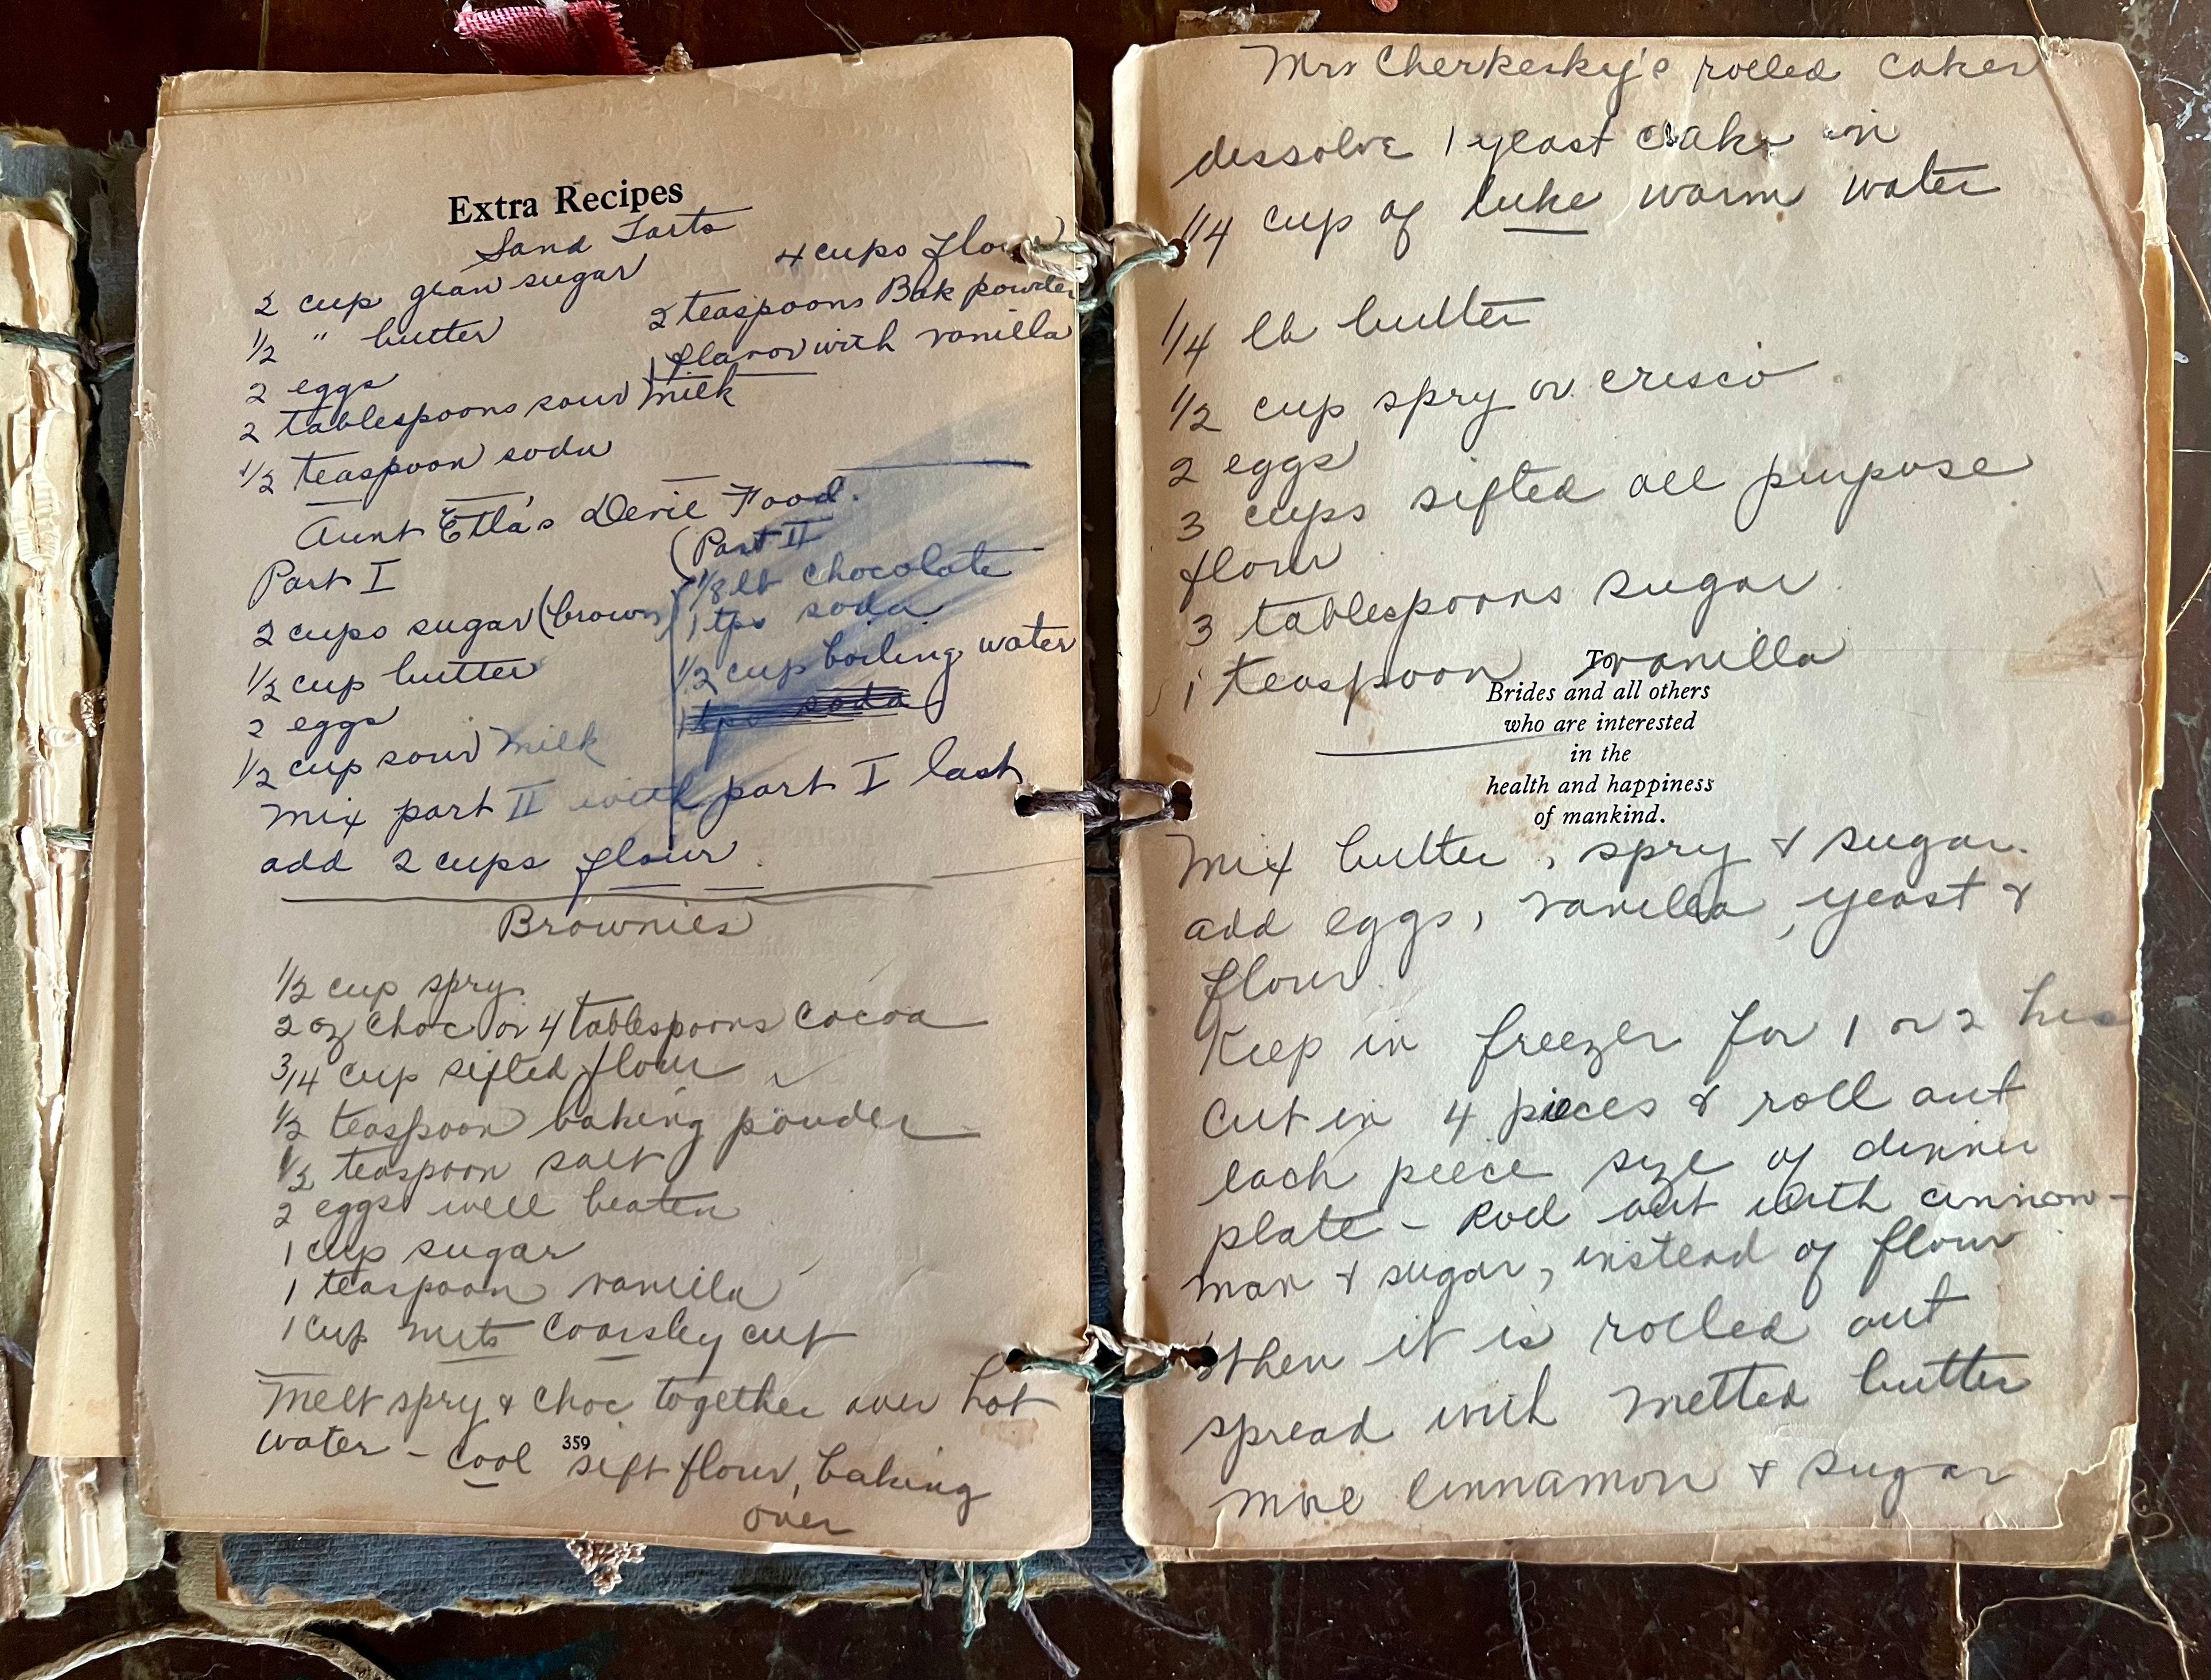 Extra Recipes
Sand Tarts
2 cup gran sugar
1/2 " butter
2 eggs
2 tablespoons sour milk
1/2 teaspoon soda
4 cups flour
2 teaspoons Bak powder
flavor with vanilla
Aunt Etta's Devil Food.
Part I
2 cups sugar (brown)
1/2 cup butter
2 eggs
1/2 cup sour milk
(Part II
1/8 lb chocolate
1 tps soda
1/2 cup boiling water
1 tps soda
Mix part II with part I last
add 2 cups flour.
Brownies
1/2 cup spry
2 oz choc or 4 tablespoons cocoa
3/4 cup sifted flour
1/2 teaspoon baking powder
1/2 teaspoon salt
2 eggs well beaten
1 cup sugar
1 teaspoon vanilla
1 cup nuts coarsley cut
Melt spry & choc together over hot
water - Cool sift flour, baking
359
over
Mrs Cherkesky's rolled cakes
dissolve 1 yeast cake in
1/4 cup of luke warm water
1/4 lb butter
1/2 cup spry or crisco
2 eggs
3 cups sifted all purpose
flour
3 tablespoons sugar
1 teaspoon vanilla
To
Brides and all others
who are interested
in the
health and happiness
of mankind.
Mix butter, spry & sugar.
add eggs, vanilla, yeast &
flour.
Keep in freezer for 1 or 2 hrs
Cut in 4 pieces & roll out
each piece size of dinner
plate - Roll out with cinnon-
man & sugar, instead of flour
When it is rolled out
spread with melted butter
more cinnamon & sugar